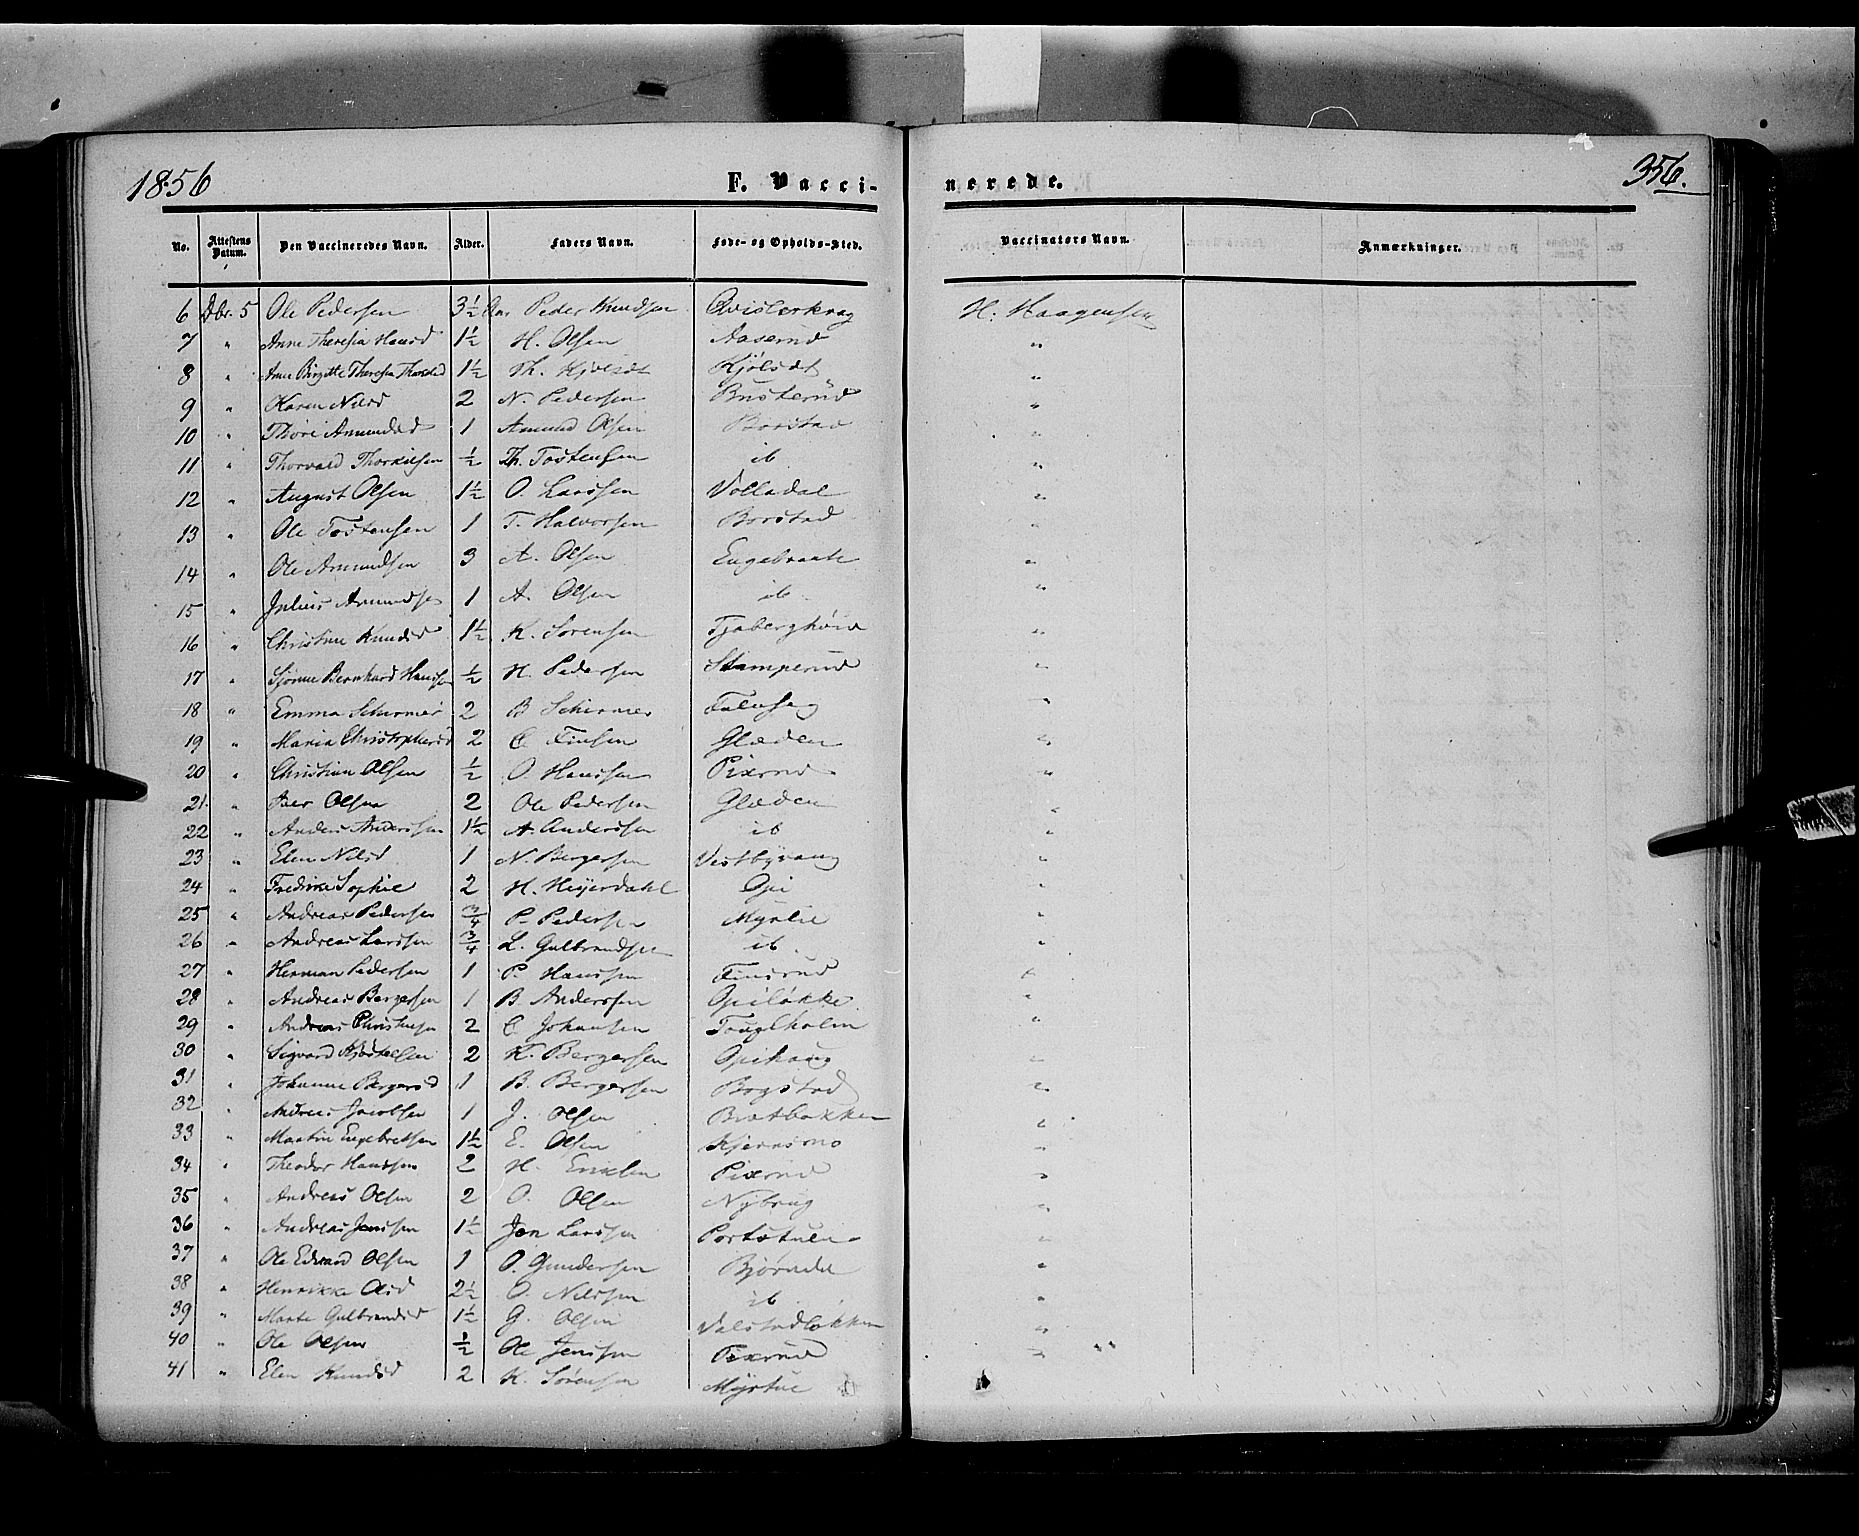 1856 F. Vacci- nerede. 356.
No. Attestens Datum. Den Vaccineredes Navn. Alder. Faders Navn. Føde- og Opholds-Sted. Vaccinators Navn. Anmærkninger.
6 Dbr. 5 Ole Pedersen 3½ Aar Peder Knudsen Qvislerkrag H. Haagensen
7 " Anne Theresia Hansd 1½ H. Olsen Aaserud "
8 " Anne Birgitte Theresia Thorsd 1½ Th. Kjölsdt Kjölsdt "
9 " Karen Nilsd 2 N. Pedersen Busterud "
10 " Thore Amundsd 1 Amund Olsen Borstad "
11 " Thorvald Thorkilsen ½ Th. Tostensen ib "
12 " August Olsen 1½ O. Larssen Volladal "
13 " Ole Tostensen 1 T. Halvorsen Borstad "
14 " Ole Amundsen 3 A. Olsen Engebraate "
15 " Julius Amundsen 1 A. Olsen ib. "
16 " Christine Knudsd 1½ K. Sorensen Tjaberghöie "
17 " Bernhard Hanssen ½ H. Pedersen Stamperud "
18 " Emma Schirmer 2 B Schirmer "
19 " Maria Christophersd 2 C Finsen Glæden "
20 " Christian Olsen ½ O. Hanssen Pixrud "
21 " Iver Olsen 2 Ole Pedersen Glæden "
22 " Anders Anderssen 1½ A. Anderssen ib "
23 " Elen Nilsd 1 N. Bergersen Vestbyvang "
24 " Fredrikke Sophie 2 H. Heyerdahl Opi "
25 " Andreas Pedersen ¾ P. Pedersen Myrlie "
26 " Andreas Larssen ¾ L. Gulbrandsen ib. "
27 " Herman Pedersen 1 P. Hanssen Finsrud "
28 " Andreas Bergersen 1 B. Anderssen Opiløkke "
29 " Andreas Christensen 2 C Johansen Fouglholm "
30 " Sigvard Kjøstelsen 2 K. Bergersen Opihaug "
31 " Johanne Bergersd 1 B. Bergersen Bogstad "
32 " Andreas Jacobsen 1 J. Olsen Bratbakken "
33 " Martin Engebretsen 1½ E. Olsen Kjernsmo "
34 " Theodor Hanssen 2 H. Eriksen Pixrud "
35 " Andreas Olsen 2 O. Olsen Nybrug "
36 " Andreas Jenssen 1½ Jen Larssen Portstuen "
37 " Ole Edvard Olsen 1 O. Gundersen Bjørneli "
38 " Henrikke Olsd 2½ O. Nilssen ib. "
39 " Marte Gulbrandsd 1½ G. Olsen Valstadløkken "
40 " Ole Olsen ½ Ole Jenssen Pixrud "
41 " Elen Knudsd 2 K. Sørensen Myrstue